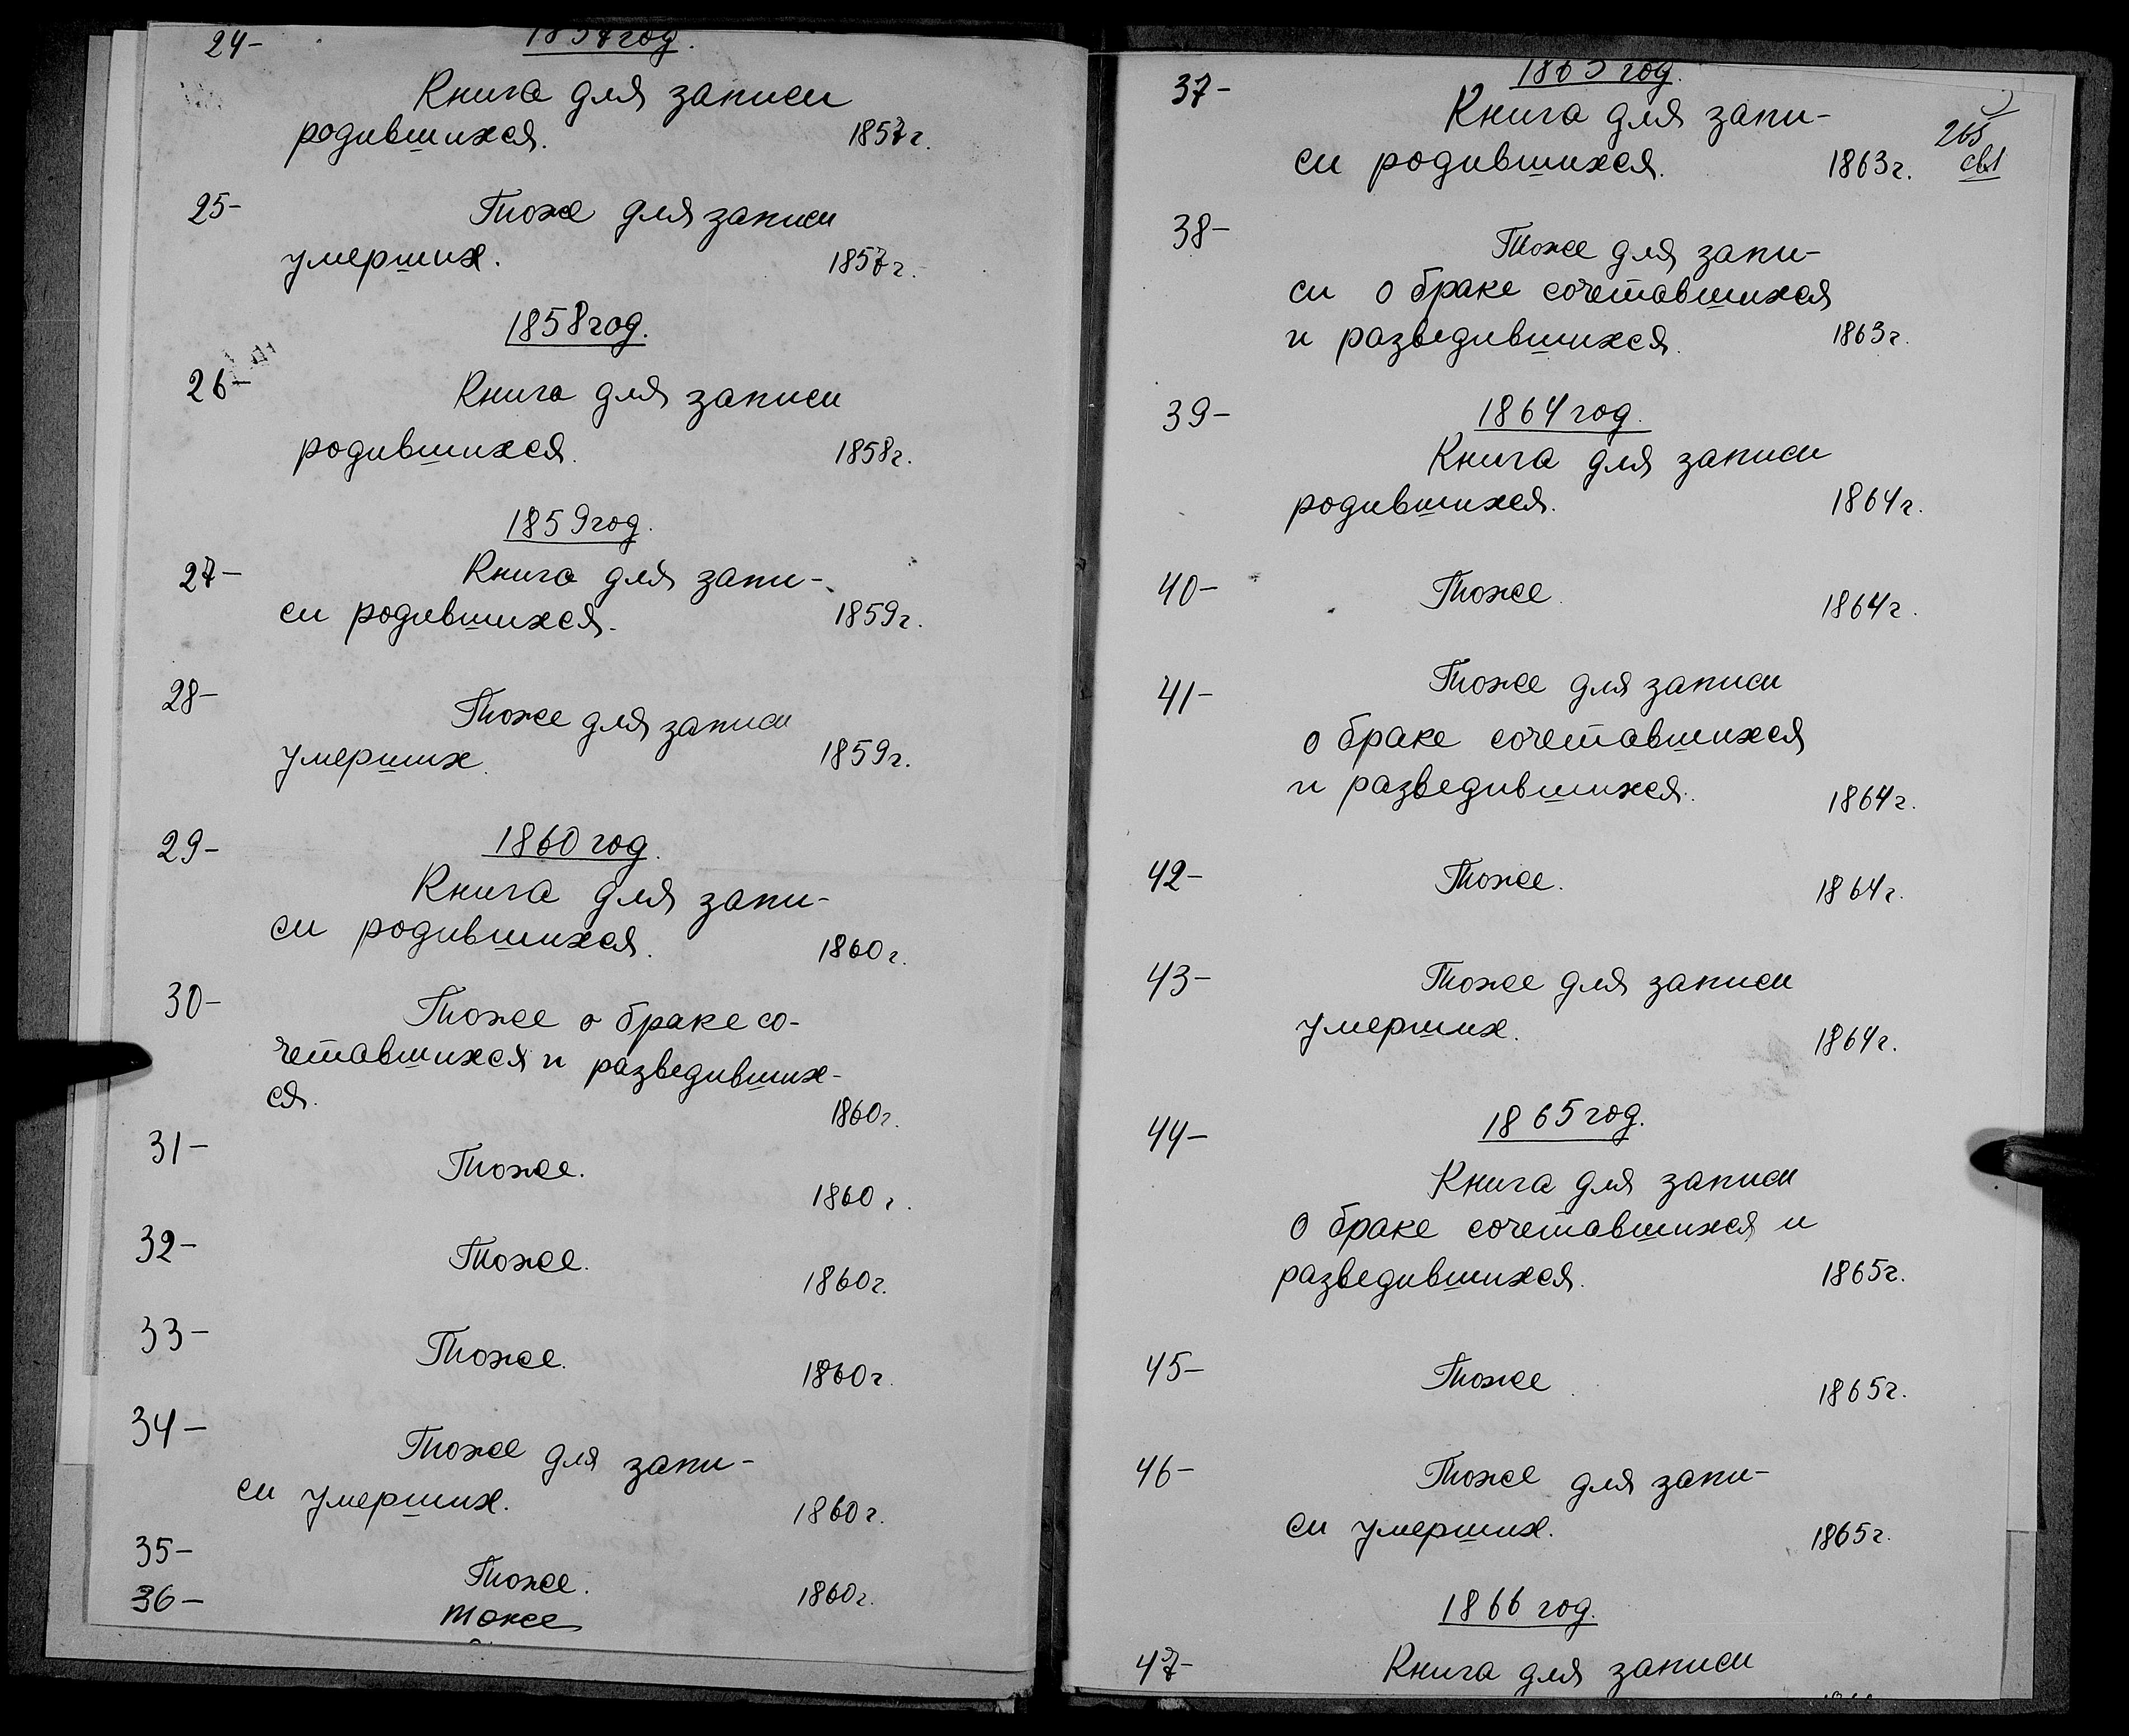 24- 1857 год.
Книга для записи
родившихся. 1857г.
25- Тоже для записи
умерших. 1857г.
1858 год.
26- Книга для записи
родившихся. 1858г.
1859 год.
27- Книга для запи-
си родившихся. 1859г.
28- Тоже для записи
умерших. 1859г.
29- 1860 год.
Книга для запи-
си родившихся. 1860г.
30- Тоже о браке со-
четавшихся и разведивших-
ся. 1860г.
31- Тоже. 1860г.
32- Тоже. 1860г.
33- Тоже. 1860г.
34- Тоже для запи-
си умерших. 1860г.
35- Тоже. 1860г.
36- Тоже
37- 1863 год.
Книга для запи-
си родившихся. 1863г.
38- Тоже для запи-
си о браке сочетавшихся
и разведившихся. 1863г.
39- 1864 год.
Книга для записи
родившихся. 1864г.
40- Тоже 1864г.
41- Тоже для записи
о браке сочетавшихся
и разведившихся. 1864г.
42- Тоже. 1864г.
43- Тоже для записи
умерших. 1864г.
44- 1865 год.
Книга для записи
о браке сочетавшихся и
разведившихся. 1865г.
45- Тоже 1865г.
46- Тоже для запи-
си умерших. 1865г.
1866 год.
47- Книга для записи